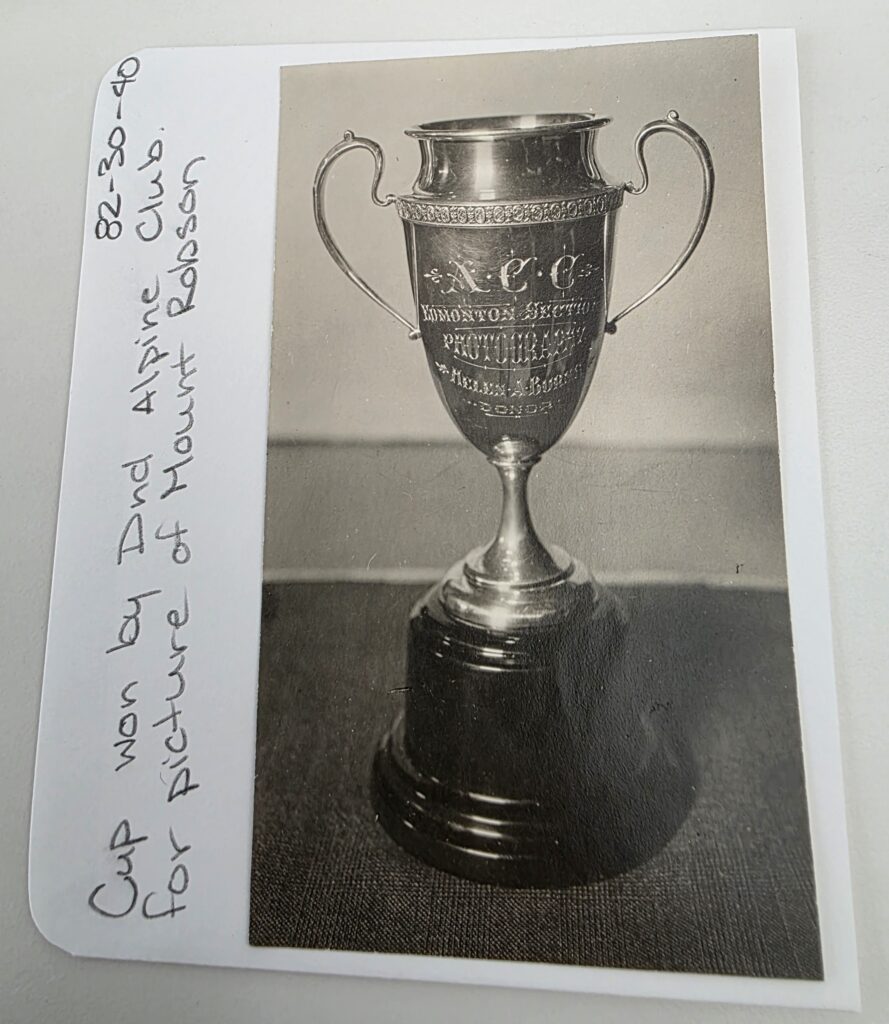 82-30-40
Cup won by Dnd Alpine Club.
for picture of Mount Robson
A·C·C
EDMONTON SECTION
PHOTOGRAPHY
HELEN·A·BURNS
DONOR